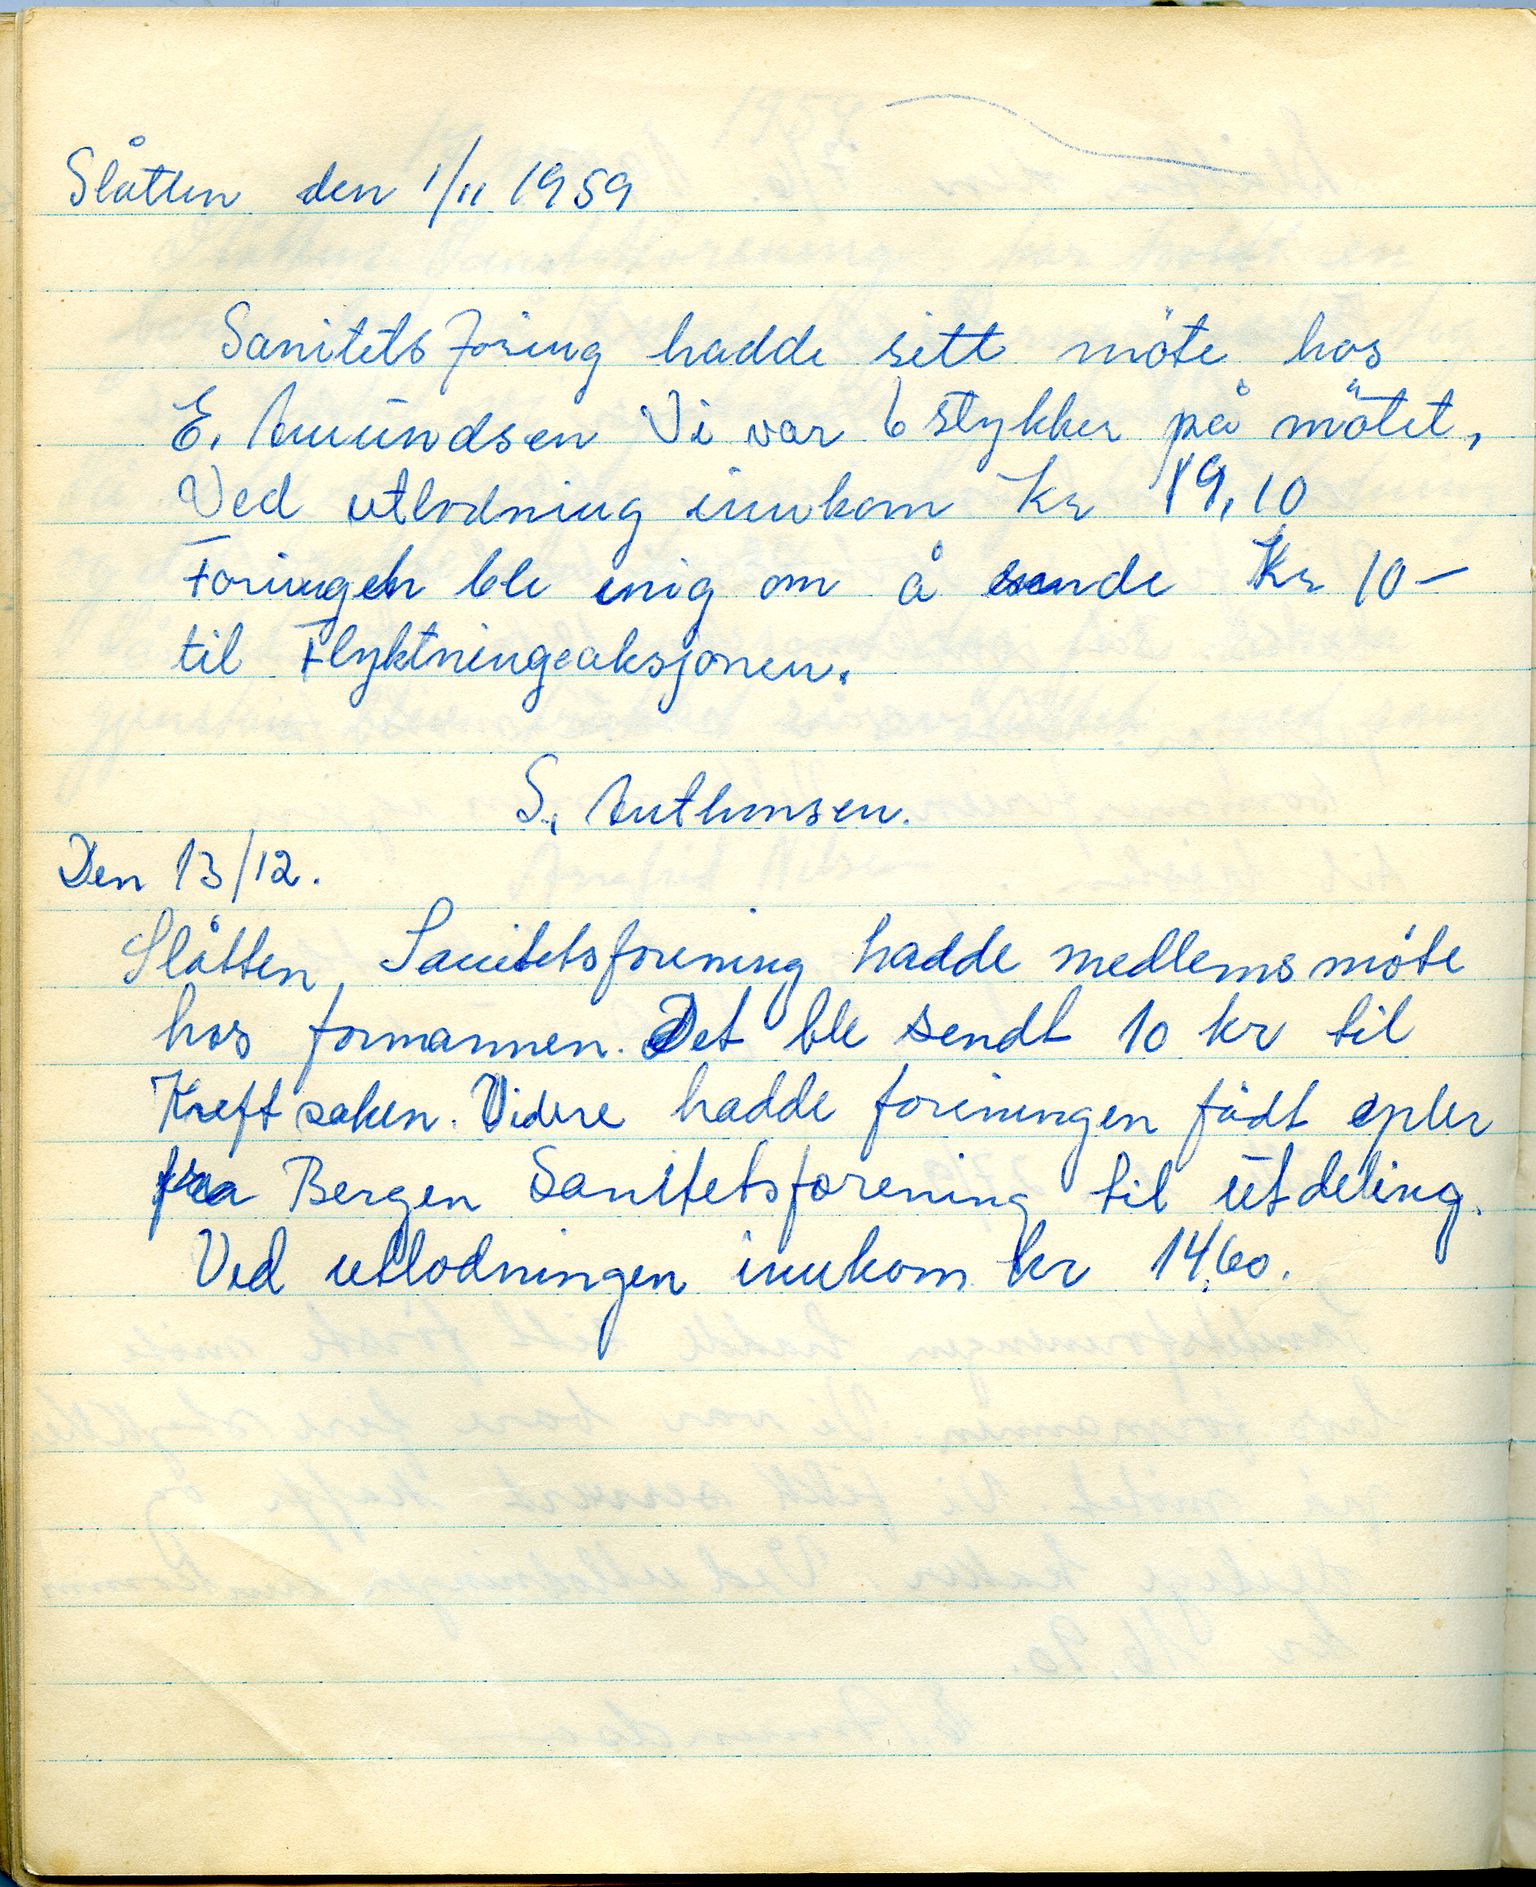 Slåtten den 1/11 1959
Sanitetsforing hadde sitt möte hos
E. Amundsen Vi var 6 stykker på mötet,
Ved utlodning innkom Kr 19,10
Foringen ble enig om å sende Kr 10-
til Flyktningeaksjonen.
S. Anthonsen.
Den 13/12.
Slåtten Sanitetsforening hadde medlemsmöte
hos formannen. Det ble sendt 10 kr til
Kreftsaken. Videre hadde foreningen fådt epler
fra Bergen Sanitetsforening til utdeling.
Ved utlodningen innkom kr 14,60.